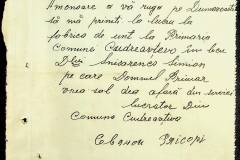 Amenoare a vă ruga pe Dumneavoastră
să mă primiți la lucru la
fabrica de unt la Primăria
Comuna Cudreavțevo în locu
D-lui Snisarenco Simion
pe care Domnul Primar
vrea sol dea afară din servici
lucrator Din
Comuna Cudreavtiva